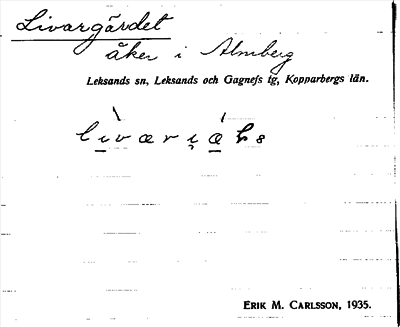 Livargärdet
åker i Almberg
Leksands sn, Leksands och Gagnefs tg, Kopparbergs län.
Erik M. Carlsson, 1935.